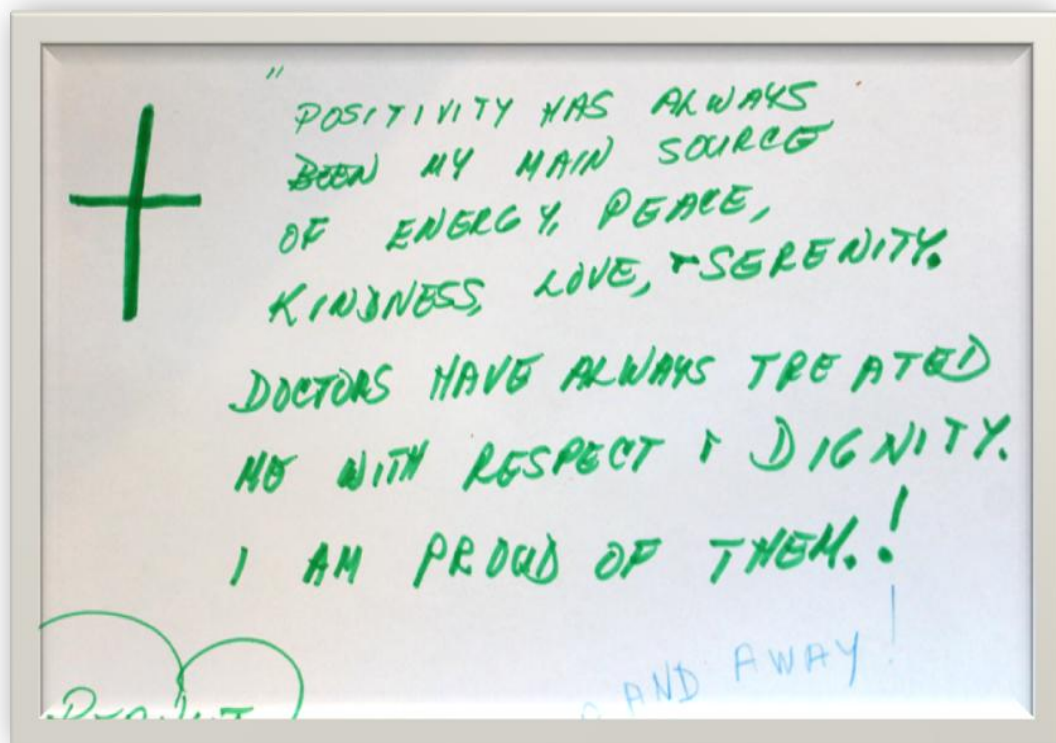 "
POSITIVITY HAS ALWAYS
BEEN MY MAIN SOURCE
OF ENERGY, PEACE,
KINDNESS, LOVE, + SERENITY.
DOCTORS HAVE ALWAYS TREATED
ME WITH RESPECT + DIGNITY.
I AM PROUD OF THEM.!
AND AWAY!